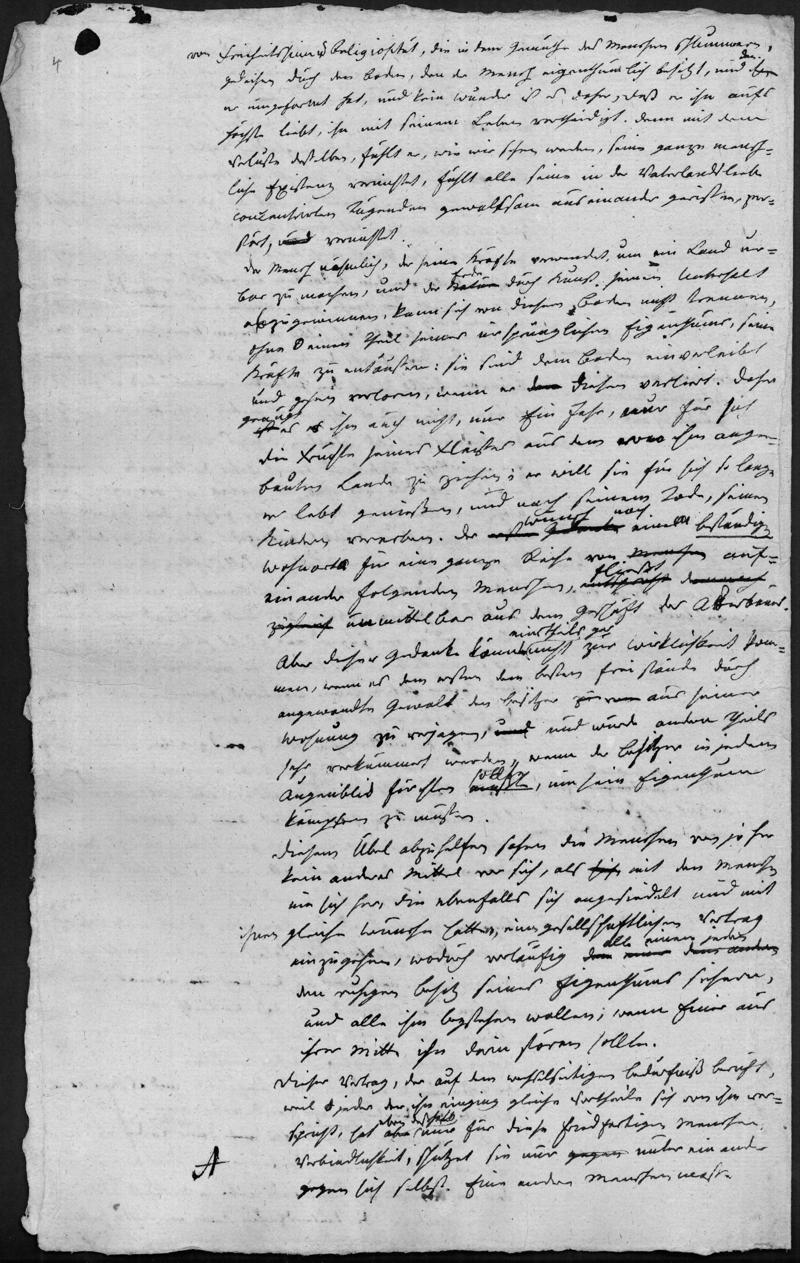 4
von Freiheitssinn u Religiosität, die in dem Gemüthe des Menschen schlummern,
gedeihen durch den Boden, den der Mensch eigenthümlich besitzt, und den
er umgeformt hat, und kein Wunder ist es daher, daß er ihn aufs
höchste liebt, ihn mit seinem Leben vertheidigt. denn mit dem
Verluste desselben, fühlt er, wie wir sehen werden, seine ganze mensch-
liche Existenz vernichtet, fühlt alle seine in der Vaterlandsliebe
conzentrirten Tugenden gewaltsam auseinander gerissen, zer-
stört, und vernichtet.
Der Mensch nähmlich, der seine Kräfte verwendet, um ein Land ur-
bar zu machen, und der Erde durch Kunst seinen Unterhalt
abzugewinnen, kann sich von diesem Boden nicht trennen,
ohne einen Theil seines ursprünglichen Eigenthums, seine
Kräfte zu entäußern: sie sind dem Boden einverleibt
und gehen verloren, wenn er diesen verliert. Daher
genügt es ihm auch nicht, nur Ein Jahr, nur für sich
die Früchte seines Fleißes aus dem von ihm ange-
bauten Lande zu ziehen; er will sie für sich so lange
er lebt genießen, und nach seinem Tode, seinen
Kindern vererben. Der Wunsch nach einem beständigen
Wohnorte für eine ganze Reihe von Menschen auf-
einander folgenden Menschen, fließt
unmittelbar aus dem Geschäft des Ackerbaues.
Aber dieser Gedanke könnte einestheils gar nicht zur Wirklichkeit kom-
men, wenn es dem ersten dem besten frei stände durch
angewandte Gewalt den Besitzer aus seiner
Wohnung zu verjagen, und und würde andern Theils
sehr verkümmert werden, wenn der Besitzer in jedem
Augenblick fürchten sollte, um sein Eigenthum
kämpfen zu müssen.
Diesem Übel abzuhelfen sahen die Menschen von je her
kein anderes Mittel vor sich, als mit den Menschen
um sich her, die ebenfalls sich angesiedelt und mit
ihnen gleiche Wünsche hatten, einen gesellschaftlichen Vertrag
einzugehen, wodurch vorläufig alle einem jeden
den ruhigen Besitz seines Eigenthums sichern,
und alle ihm beystehen wollen; wenn Einer aus
ihrer Mitte ihn darin stören sollte.
Dieser Vertrag, der auf dem wechselseitigen Bedürfniß beruht,
weil jeder der ihn einging gleiche Vortheile sich von ihm ver-
spricht, hat eben deshalb nur für diese friedfertigen Menschen
Verbindlichkeit, schützet sie nur gegen unter einander
A gegen sich selbst. Eine andere Menschenmasse